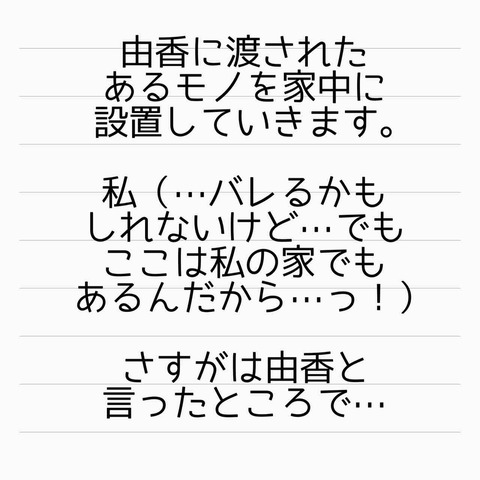 由香に渡された
あるモノを家中に
設置していきます。
私（…バレるかも
しれないけど…でも
ここは私の家でも
あるんだから…っ！）
さすがは由香と
言ったところで…